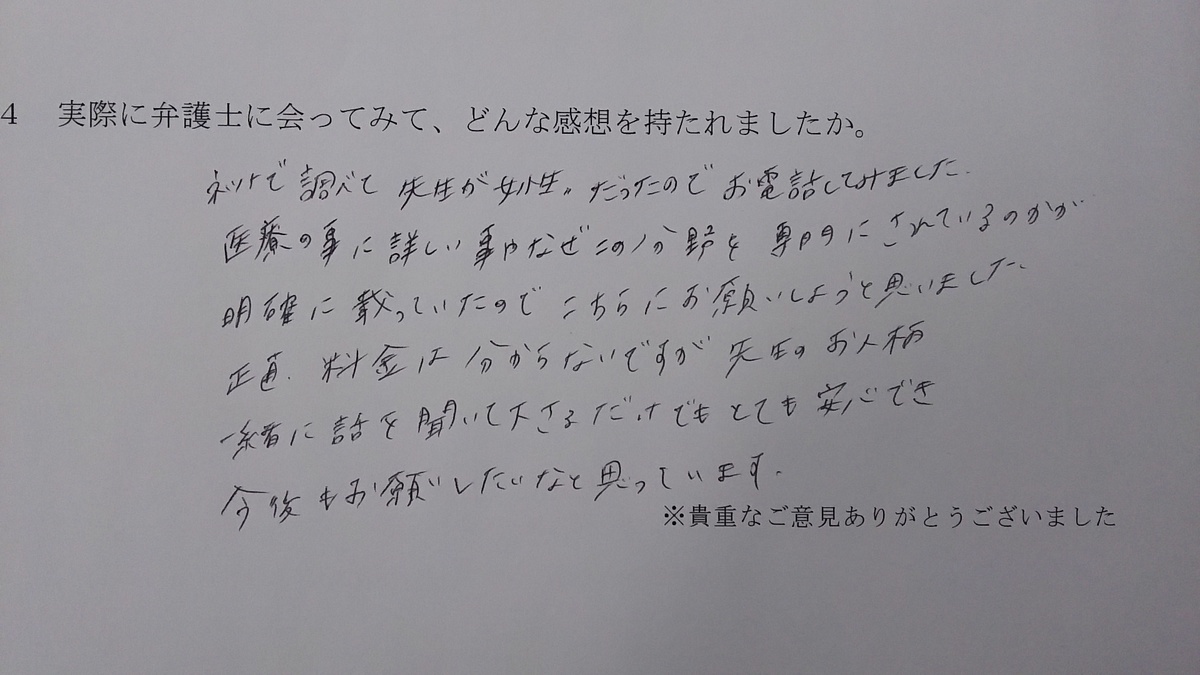 4 実際に弁護士に会ってみて、どんな感想を持たれましたか。
ネットで調べて 先生が女性〃だったのでお電話してみました.
医療の事に詳しい事やなぜこの分野を専門にされているのかが
明確に載っていたのでこちらにお願いしようと思いました.
正直.料金は分からないですが先生のお人柄
一緒に話を聞いて下さるだけでもとても安心でき
今後もお願いしたいなと思っています.
※貴重なご意見ありがとうございました